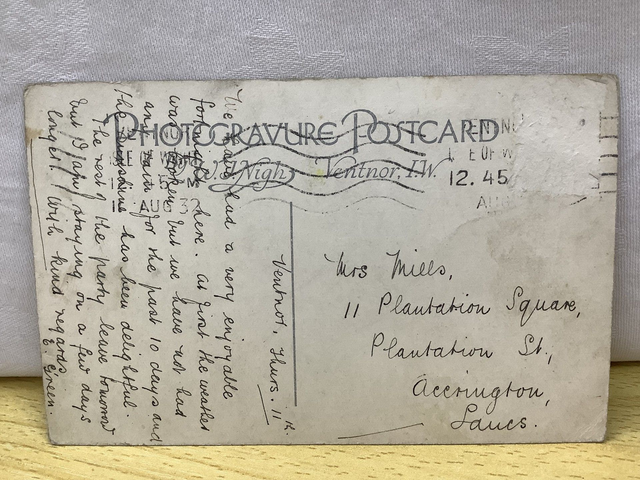 PHOTOGRAVURE POSTCARD
Nigh Ventnor, I.W.
VENTN
E OF W
12.45
AU
AUG 3
Ventnor, Thurs. 11th.
We have had a very enjoyable
fortnight here. At first the weather
was broken but we have not had
any rain for the past 10 days and
the sunshine has been delightful.
The rest of the party leave tomorrow
but I am staying on a few days
longer. With kind regards
E. Green.
Mrs Mills,
11 Plantation Square,
Plantation St.,
Accrington,
Lancs.